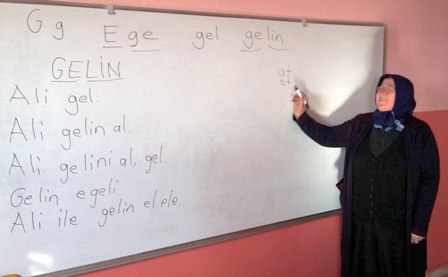 G g Ege gel gelin
GELİN
at
et
Ali gel.
Ali gelin al.
Ali gelini al, gel.
Gelin egeli
Ali ile gelin el ele.